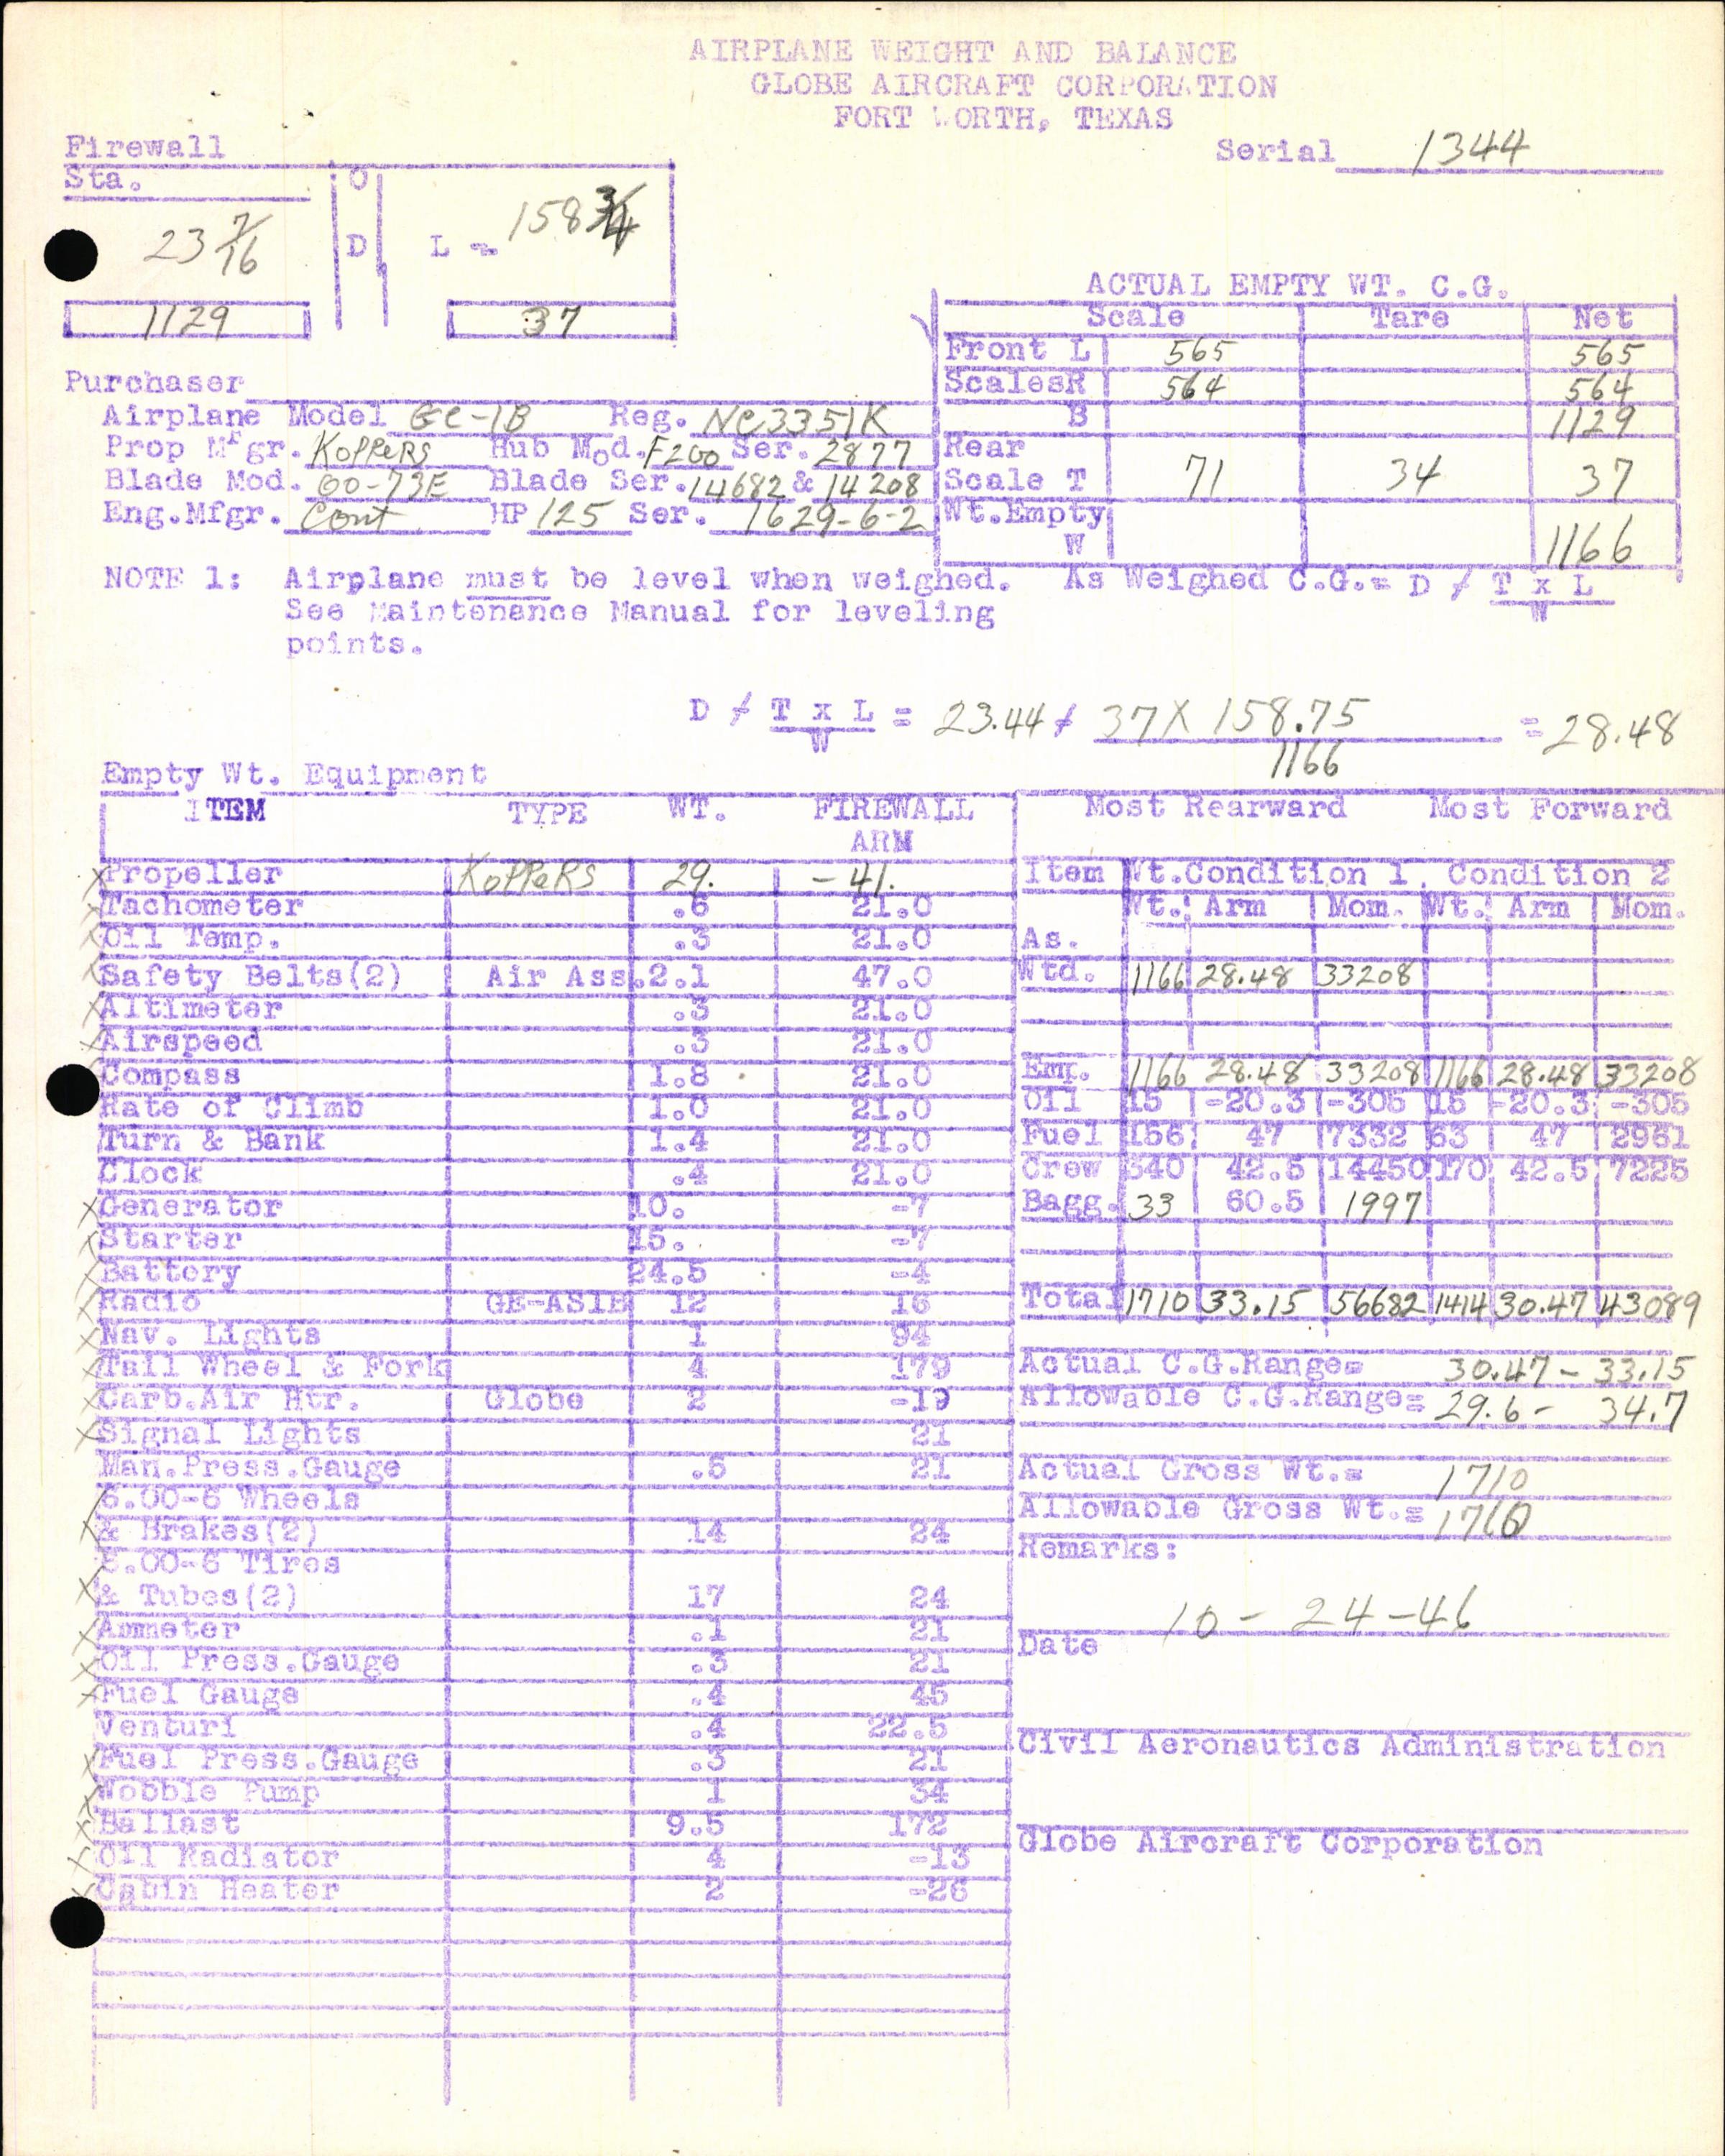 AIRPLANE WEIGHT AND BALANCE
GLOBE AIRCRAFT CORPORATION
FORT WORTH, TEXAS
Serial 1344
Firewall
Sta. O
23 7/16 D L = 158 3/4
1129 37
ACTUAL EMPTY WT. C.G.
Scale Tare Net
Front L 565 565
Scales R 564 564
B 1129
Rear
Scale T 71 34 37
Wt. Empty
W 1166
Purchaser
Airplane Model GC-1B Reg. NC3351K
Prop Mfgr. KOPPERS Hub Mod. F200 Ser. 2877
Blade Mod. 00-73E Blade Ser. 14682 & 14208
Eng.Mfgr. Cont HP 125 Ser. 1629-6-2
NOTE 1: Airplane must be level when weighed. As Weighed C.G.= D / T x L
See Maintenance Manual for leveling W
points.
D / T x L = 23.44 / 37 X 158.75 = 28.48
W 1166
Empty Wt. Equipment
ITEM TYPE WT. FIREWALL
ARM
X Propeller KOPPERS 29. -41.
X Tachometer .6 21.0
X Oil Temp. .3 21.0
X Safety Belts(2) Air Ass. 2.1 47.0
X Altimeter .3 21.0
X Airspeed .3 21.0
Compass 1.8 21.0
Rate of Climb 1.0 21.0
Turn & Bank 1.4 21.0
Clock .4 21.0
X Generator 10. -7
X Starter 15. -7
X Battery 24.5 -4
X Radio GE-AS1B 12 16
X Nav. Lights 1 94
X Tail Wheel & Fork 4 179
X Carb.Air Htr. Globe 2 -19
X Signal Lights 21
Man.Press.Gauge .5 21
6.00-6 Wheels
X & Brakes(2) 14 24
6.00-6 Tires
X & Tubes(2) 17 24
X Ammeter .1 21
X Oil Press.Gauge .3 21
X Fuel Gauge .4 45
Venturi .4 22.5
X Fuel Press.Gauge .3 21
X Wobble Pump 1 34
X Ballast 9.5 172
X Oil Radiator 4 -13
X Cabin Heater 2 -26
Most Rearward Most Forward
Item Wt.Condition 1. Condition 2
Wt. Arm Mom. Wt. Arm Mom.
As.
Wtd. 1166 28.48 33208
Emp. 1166 28.48 33208 1166 28.48 33208
Oil 15 -20.3 -305 15 -20.3 -305
Fuel 156 47 7332 63 47 2961
Crew 340 42.5 14450 170 42.5 7225
Bagg. 33 60.5 1997
Total 1710 33.15 56682 1414 30.47 43089
Actual C.G.Range= 30.47 - 33.15
Allowable C.G.Range= 29.6 - 34.7
Actual Gross Wt.= 1710
Allowable Gross Wt.= 1710
Remarks:
10 - 24 - 46
Date
Civil Aeronautics Administration
Globe Aircraft Corporation